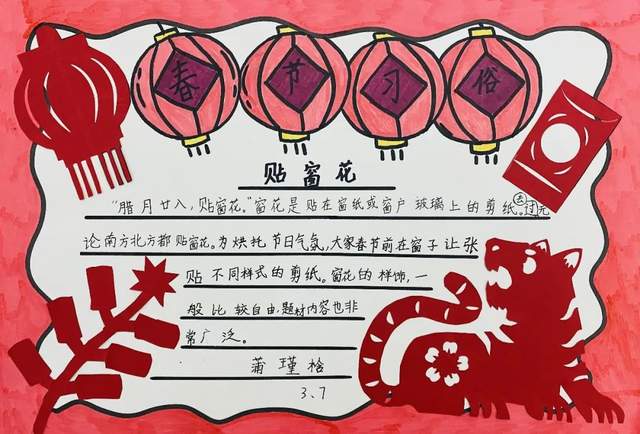 春节习俗
贴窗花
“腊月廿八,贴窗花。”窗花是贴在窗纸或窗户玻璃上的剪纸。过去无
论南方北方都贴窗花。为烘托节日气氛,大家春节前在窗子上张
贴不同样式的剪纸。窗花的样饰,一
般比较自由,题材内容也非
常广泛。
蒲瑾
3.7